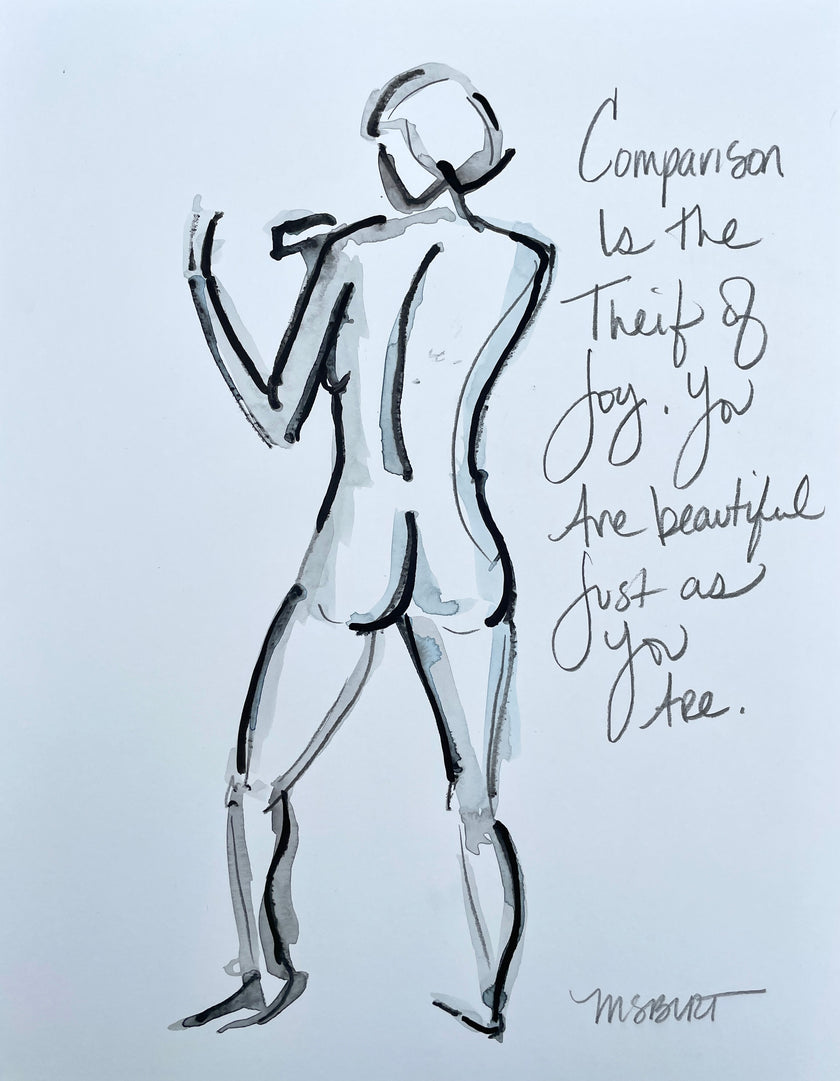 Comparison
Is the
Theif of
Joy. You
Are beautiful
Just as
You
Are.
MSBURT